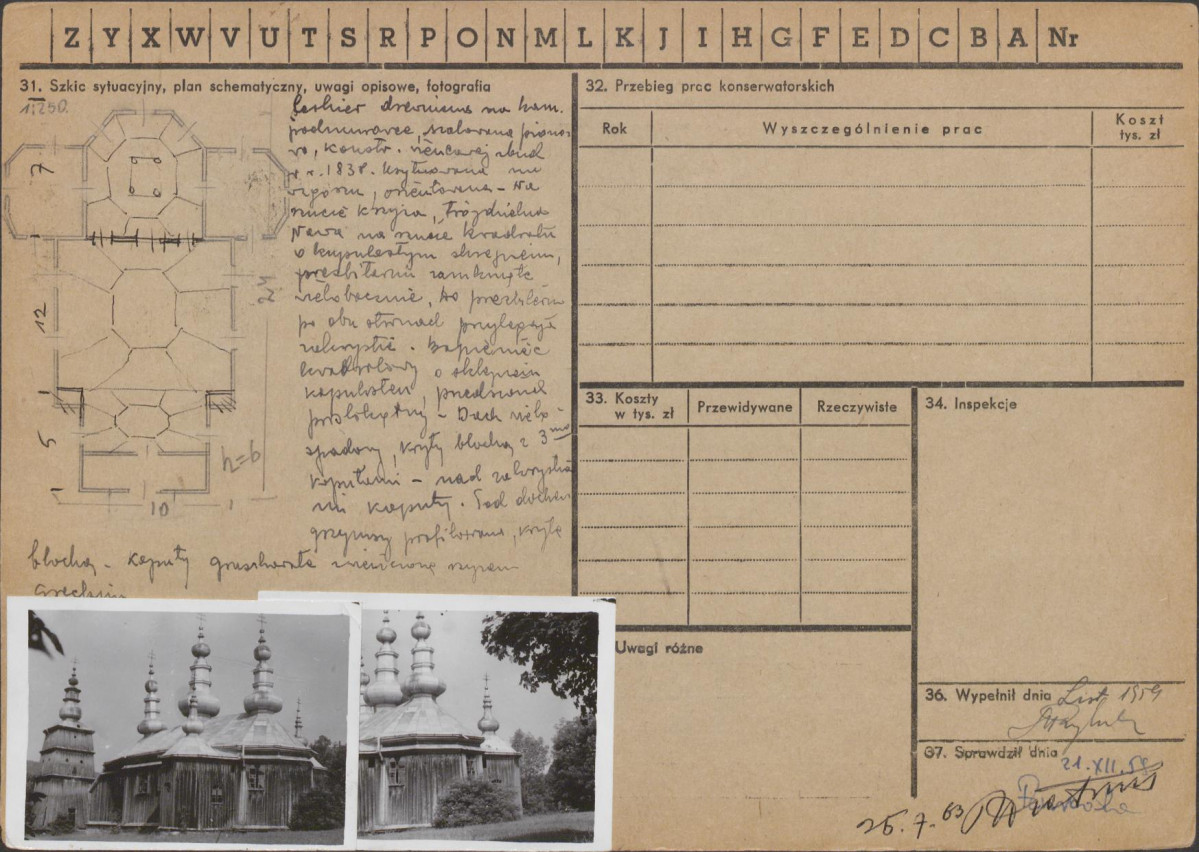 Z Y X W V U T S R P O N M L K J I H G F E D C B A Nr
31. Szkic sytuacyjny, plan schematyczny, uwagi opisowe, fotografia
1:250.
7
12
5
1
1
24
10
h=6
drewniana na kam.
podmurowce, szalowana piono-
wo, konstr. wieńcowej zbud
w r. 1838. Usytuowana na
wzgórzu, orientowana – Na
rzucie krzyża, trójdzielna
Nawa na rzucie kwadratu
o kopulastym sklepieniu,
prezbiterium zamknięte
wielobocznie, do prezbiterium
po obu stronach przylegają
zakrystie. Babiniec
kwadratowy o sklepieniu
kopulastym, przedsionek
prostokątny – Dach wielo-
spadowy, kryty blachą z 3ma
kopułami – nad zakrystia-
mi kopuły. Pod dachem
gzymsy profilowane, kryte
blachą – kopuły gruszkowate zwieńczone
32. Przebieg prac konserwatorskich
Rok
Wyszczególnienie prac
Koszt
tys. zł
33. Koszty
w tys. zł
Przewidywane
Rzeczywiste
34. Inspekcje
Uwagi różne
36. Wypełnił dnia List 1959
37. Sprawdził dnia
21.XII.59
25.7.63